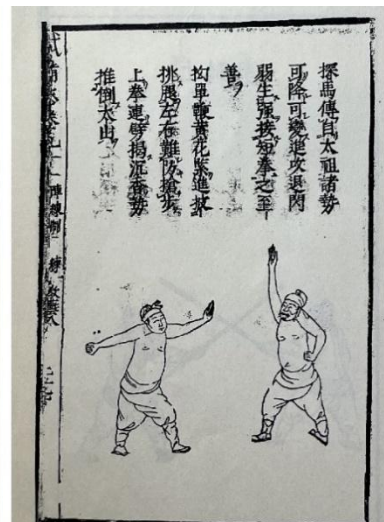 探馬傳自太祖諸勢
可降可變進攻退閃
弱生強接短拳之至
善
拗單鞭黃花緊進披
挑腿左右難防搶步
上拳連劈揭沉香勢
推倒太山
武備志卷九十一 陣練制 練 教藝八